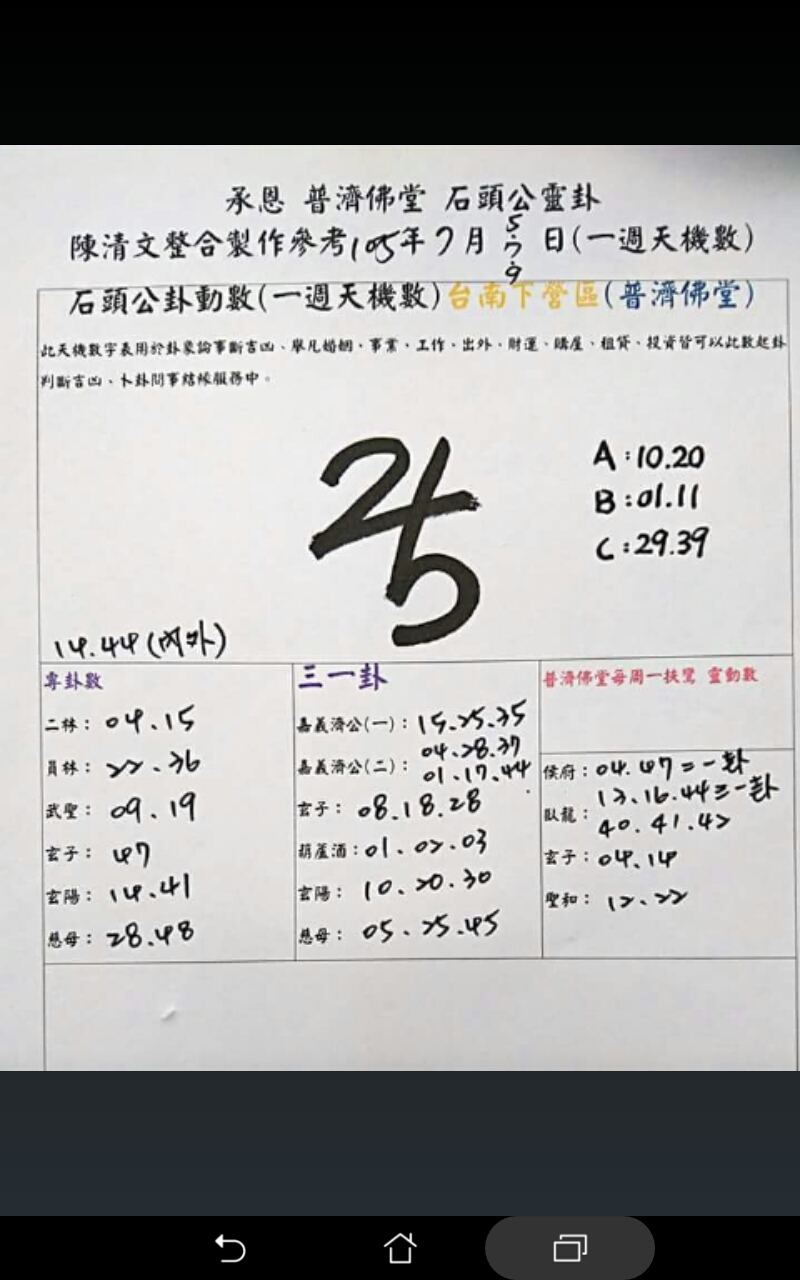 承恩 普濟佛堂 石頭公靈卦
陳清文整合製作參考105年7月5.7.9日(一週天機數)
石頭公卦動數(一週天機數)台南下營區(普濟佛堂)
此天機數字表用於卦象論事斷吉凶、舉凡婚姻、事業、工作、出外、財運、購屋、租貸、投資皆可以此數起卦
判斷吉凶、卜卦問事結緣服務中。
A:10.20
B:01.11
C:29.39
14.44(內外)
專卦數
二林: 04.15
員林: 22.36
武聖: 09.19
玄子: 47
玄陽: 14.41
慈母: 28.48
三一卦
嘉義濟公(一): 15.25.35
嘉義濟公(二): 04.28.37
01.17.44
玄子: 08.18.28
葫蘆酒:01.02.03
玄陽: 10.20.30
慈母: 05.25.45
普濟佛堂每周一扶鸞 靈動數
侯府:04.47=一卦
臥龍: 13.16.44=一卦
40.41.42
玄子:04.14
聖和: 12.22